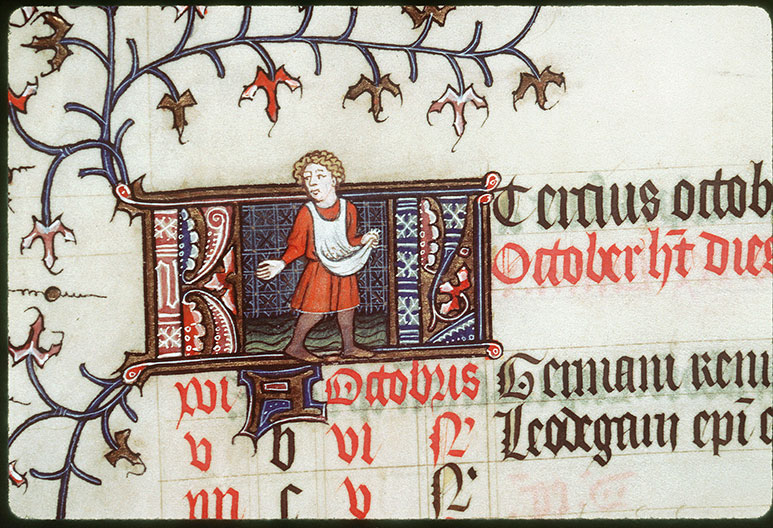 KL
Tercius octob
October ht dies
xvi A Octobris Germani remi
v b vi N Leodegarii epi
c v N